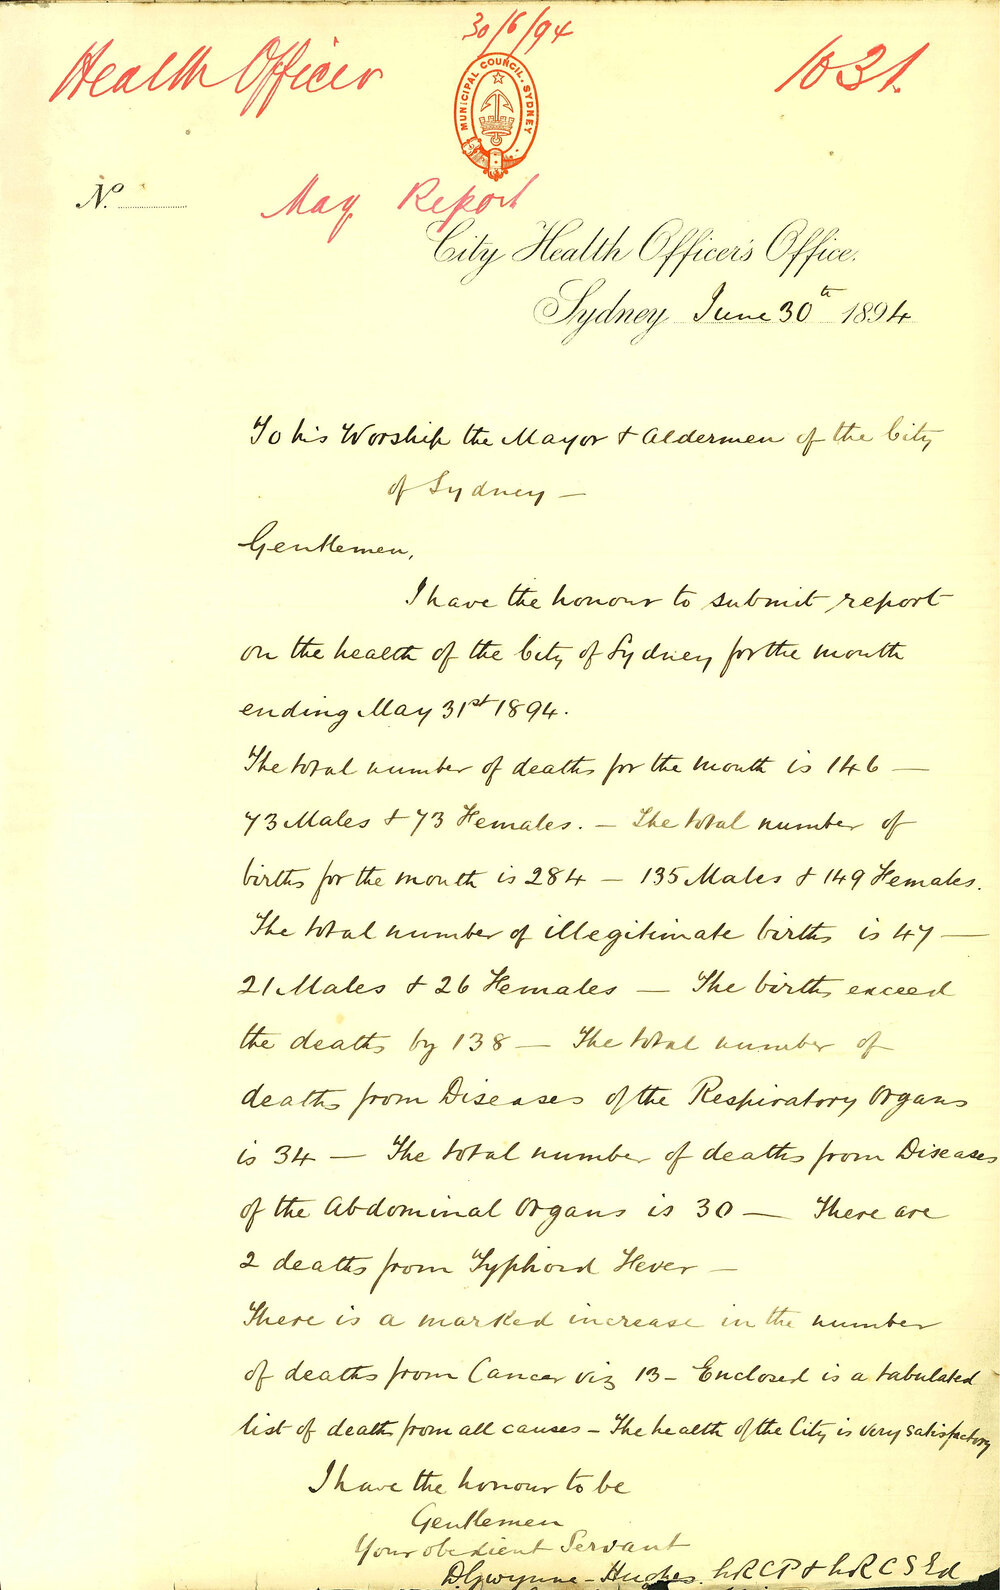 30/6/94
Health Officer
1031.
MUNICIPAL COUNCIL. SYDNEY
No.
May Report
City Health Officer's Office.
Sydney June 30th 1894
To his Worship the Mayor & Aldermen of the City
of Sydney —
Gentlemen,
I have the honour to submit report
on the health of the City of Sydney for the month
ending May 31st 1894.
The total number of deaths for the month is 146 —
73 Males & 73 Females. — The total number of
births for the month is 284 — 135 Males & 149 Females.
The total number of illegitimate births is 47 —
21 Males & 26 Females — The births exceed
the deaths by 138 — The total number of
deaths from Diseases of the Respiratory Organs
is 34 — The total number of deaths from Diseases
of the Abdominal Organs is 30 — There are
2 deaths from Typhoid Fever —
There is a marked increase in the number
of deaths from Cancer viz 13 - Enclosed is a tabulated
list of deaths from all causes - The health of the City is very satisfactory
I have the honour to be
Gentlemen
Your obedient Servant
D. Gwynne-Hughes. LRCP & LRCS Ed